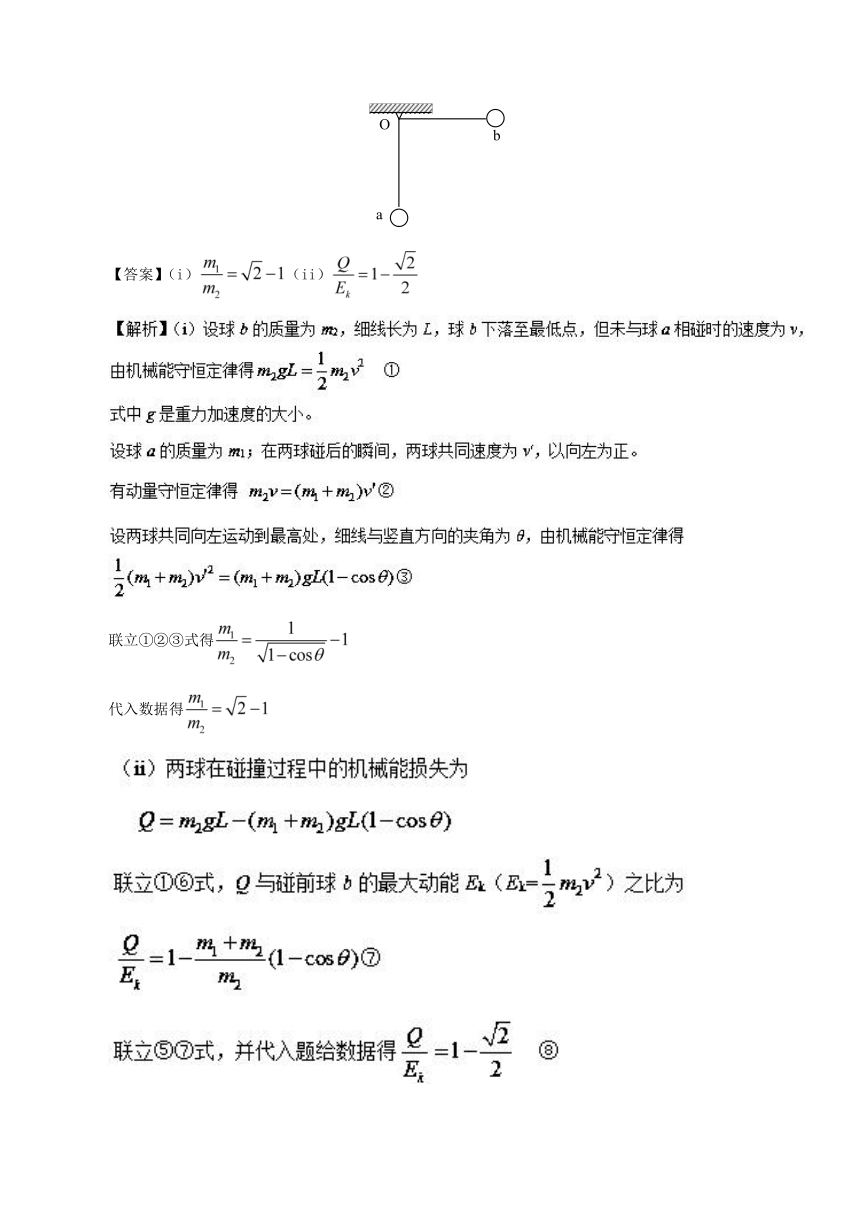 O
b
a
【答案】(i) m₁/m₂ = √2 − 1 (ii) Q/Eₖ = 1 − √2/2
【解析】(i)设球 b 的质量为 m₂，细线长为 L，球 b 下落至最低点，但未与球 a 相碰时的速度为 v，
由机械能守恒定律得 m₂gL = 1/2 m₂v² ①
式中 g 是重力加速度的大小。
设球 a 的质量为 m₁；在两球碰后的瞬间，两球共同速度为 v′，以向左为正。
有动量守恒定律得 m₂v = (m₁ + m₂)v′②
设两球共同向左运动到最高处，细线与竖直方向的夹角为 θ，由机械能守恒定律得
1/2 (m₁ + m₂)v′² = (m₁ + m₂)gL(1 − cosθ)③
联立①②③式得 m₁/m₂ = 1/√(1 − cosθ) − 1
代入数据得 m₁/m₂ = √2 − 1
(ii)两球在碰撞过程中的机械能损失为
Q = m₂gL − (m₁ + m₂)gL(1 − cosθ)
联立①⑥式，Q 与碰前球 b 的最大动能 Eₖ（Eₖ= 1/2 m₂v²）之比为
Q/Eₖ = 1 − (m₁ + m₂)/m₂ (1 − cosθ)⑦
联立⑤⑦式，并代入题给数据得 Q/Eₖ = 1 − √2/2 ⑧